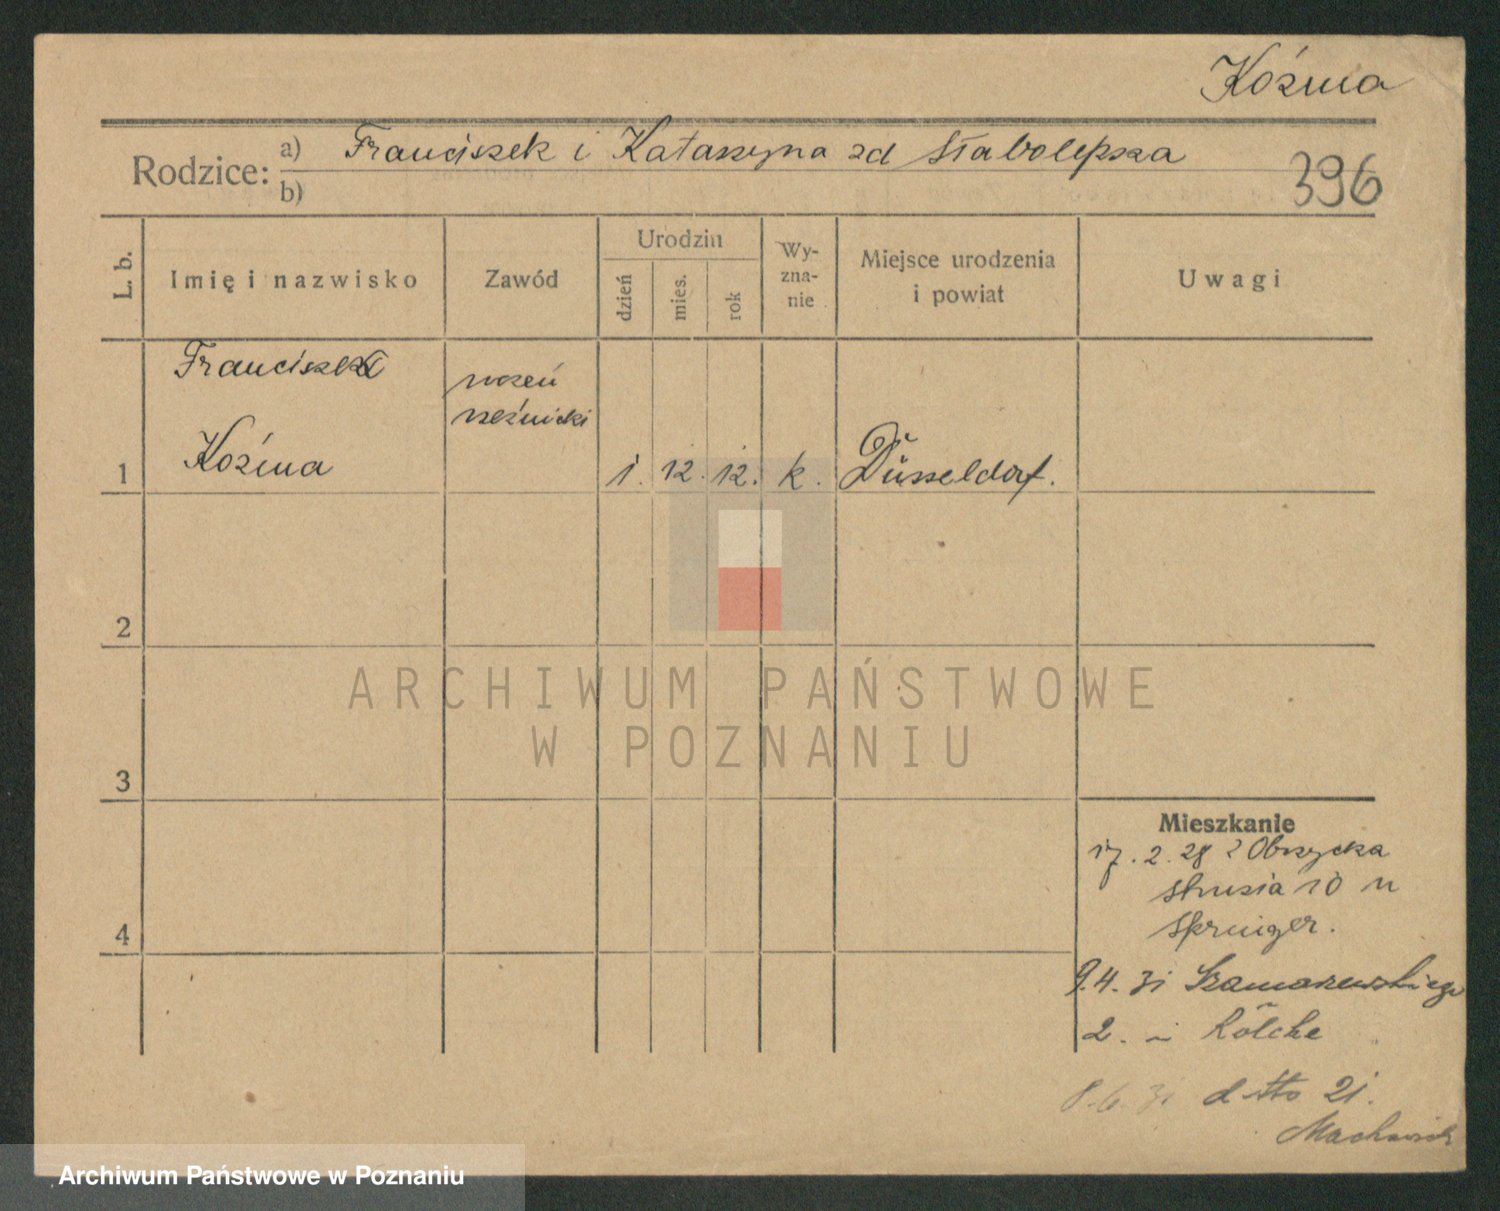 Koźma
Rodzice: a) Franciszek i Katarzyna zd Słabolepsza
b)
396
L. b.
Imię i nazwisko
Zawód
Urodzin
dzień
mies.
rok
Wy-
zna-
nie
Miejsce urodzenia
i powiat
Uwagi
Franciszek
uczeń
rzeźnicki
1 Koźma 1. 12. 12. k. Düsseldorf.
2
3
4
ARCHIWUM PAŃSTWOWE
W POZNANIU
Mieszkanie
17. 2. 28 z Obrzycka
Strusia 10 u
Springer.
9.4. 31 Szamarzewskiego
2. u Kölche
8.6. 31 ditto 21.
Archiwum Państwowe w Poznaniu